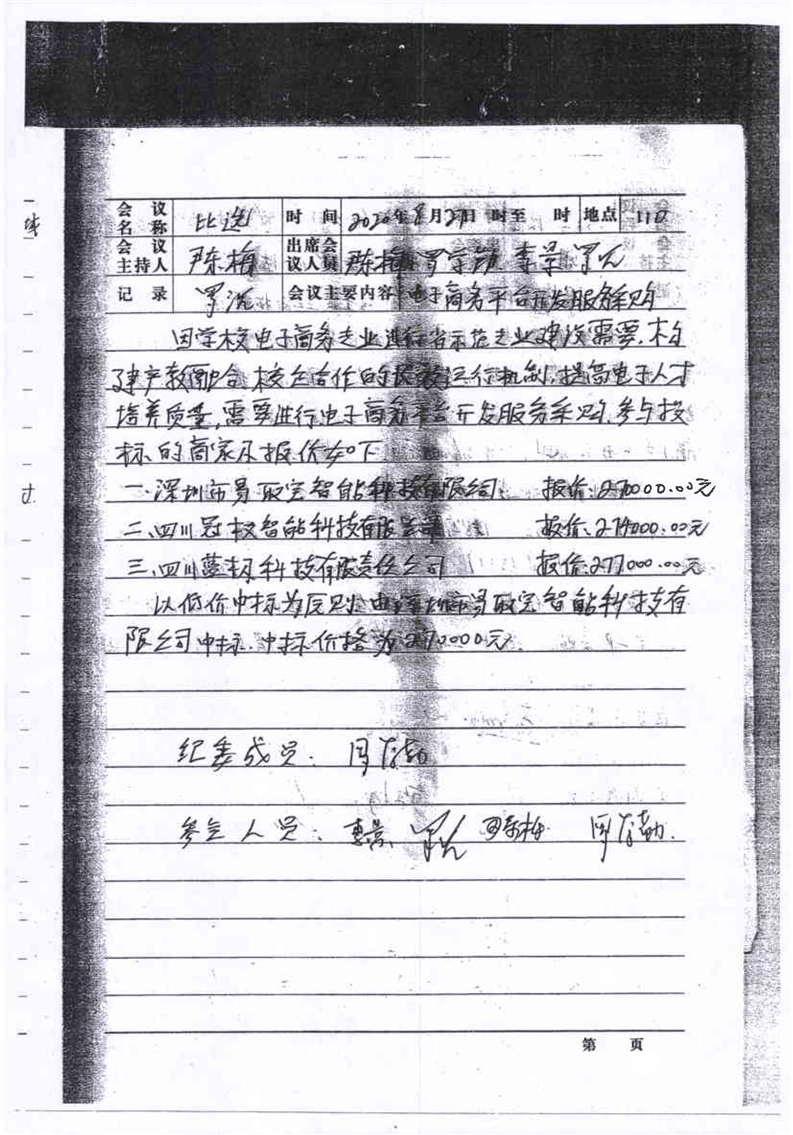 会议名称 比选 时间 2020年8月27日 时至 时 地点 110
会议主持人 陈梅 出席会议人员 陈梅 李景
记录 会议主要内容: 电子商务平台开发服务采购
因学校电子商务专业进行省示范专业建设需要,构
建产教融合、校企合作的长效运行机制,提高电子人才
培养质量,需要进行电子商务平台开发服务采购,参与投
标的商家及报价如下
一.深圳市易取宝智能科技有限公司: 报价:270000.00元
二、四川冠权智能科技有限公司 报价:274000.00元
三、四川蓝标科技有限责任公司 报价:277000.00元
以低价中标为原则,由深圳市易取宝智能科技有
限公司中标.中标价格为270000元.
纪委成员:
参会人员:
第 页